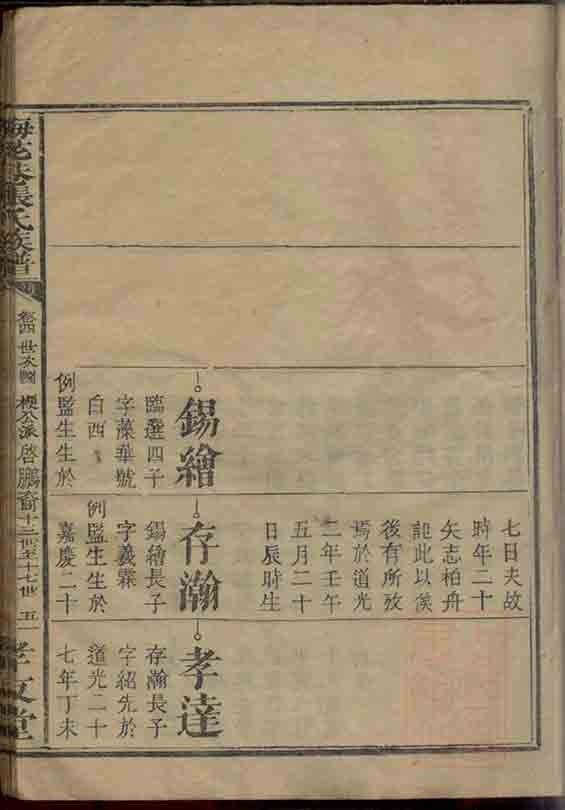 七日夫故
時年二十
矢志柏舟
記此以俟
後有所攷
焉於道光
二年壬午
五月二十
日辰時生
錫繪
臨選四子
字藻華號
白西
例監生生於
存瀚
錫繪長子
字義霖
例監生生於
嘉慶二十
孝達
存瀚長子
字紹先於
道光二十
七年丁未
張氏族譜
卷四 世次圖 樱公派啓鵬裔十三世至十七世 五一